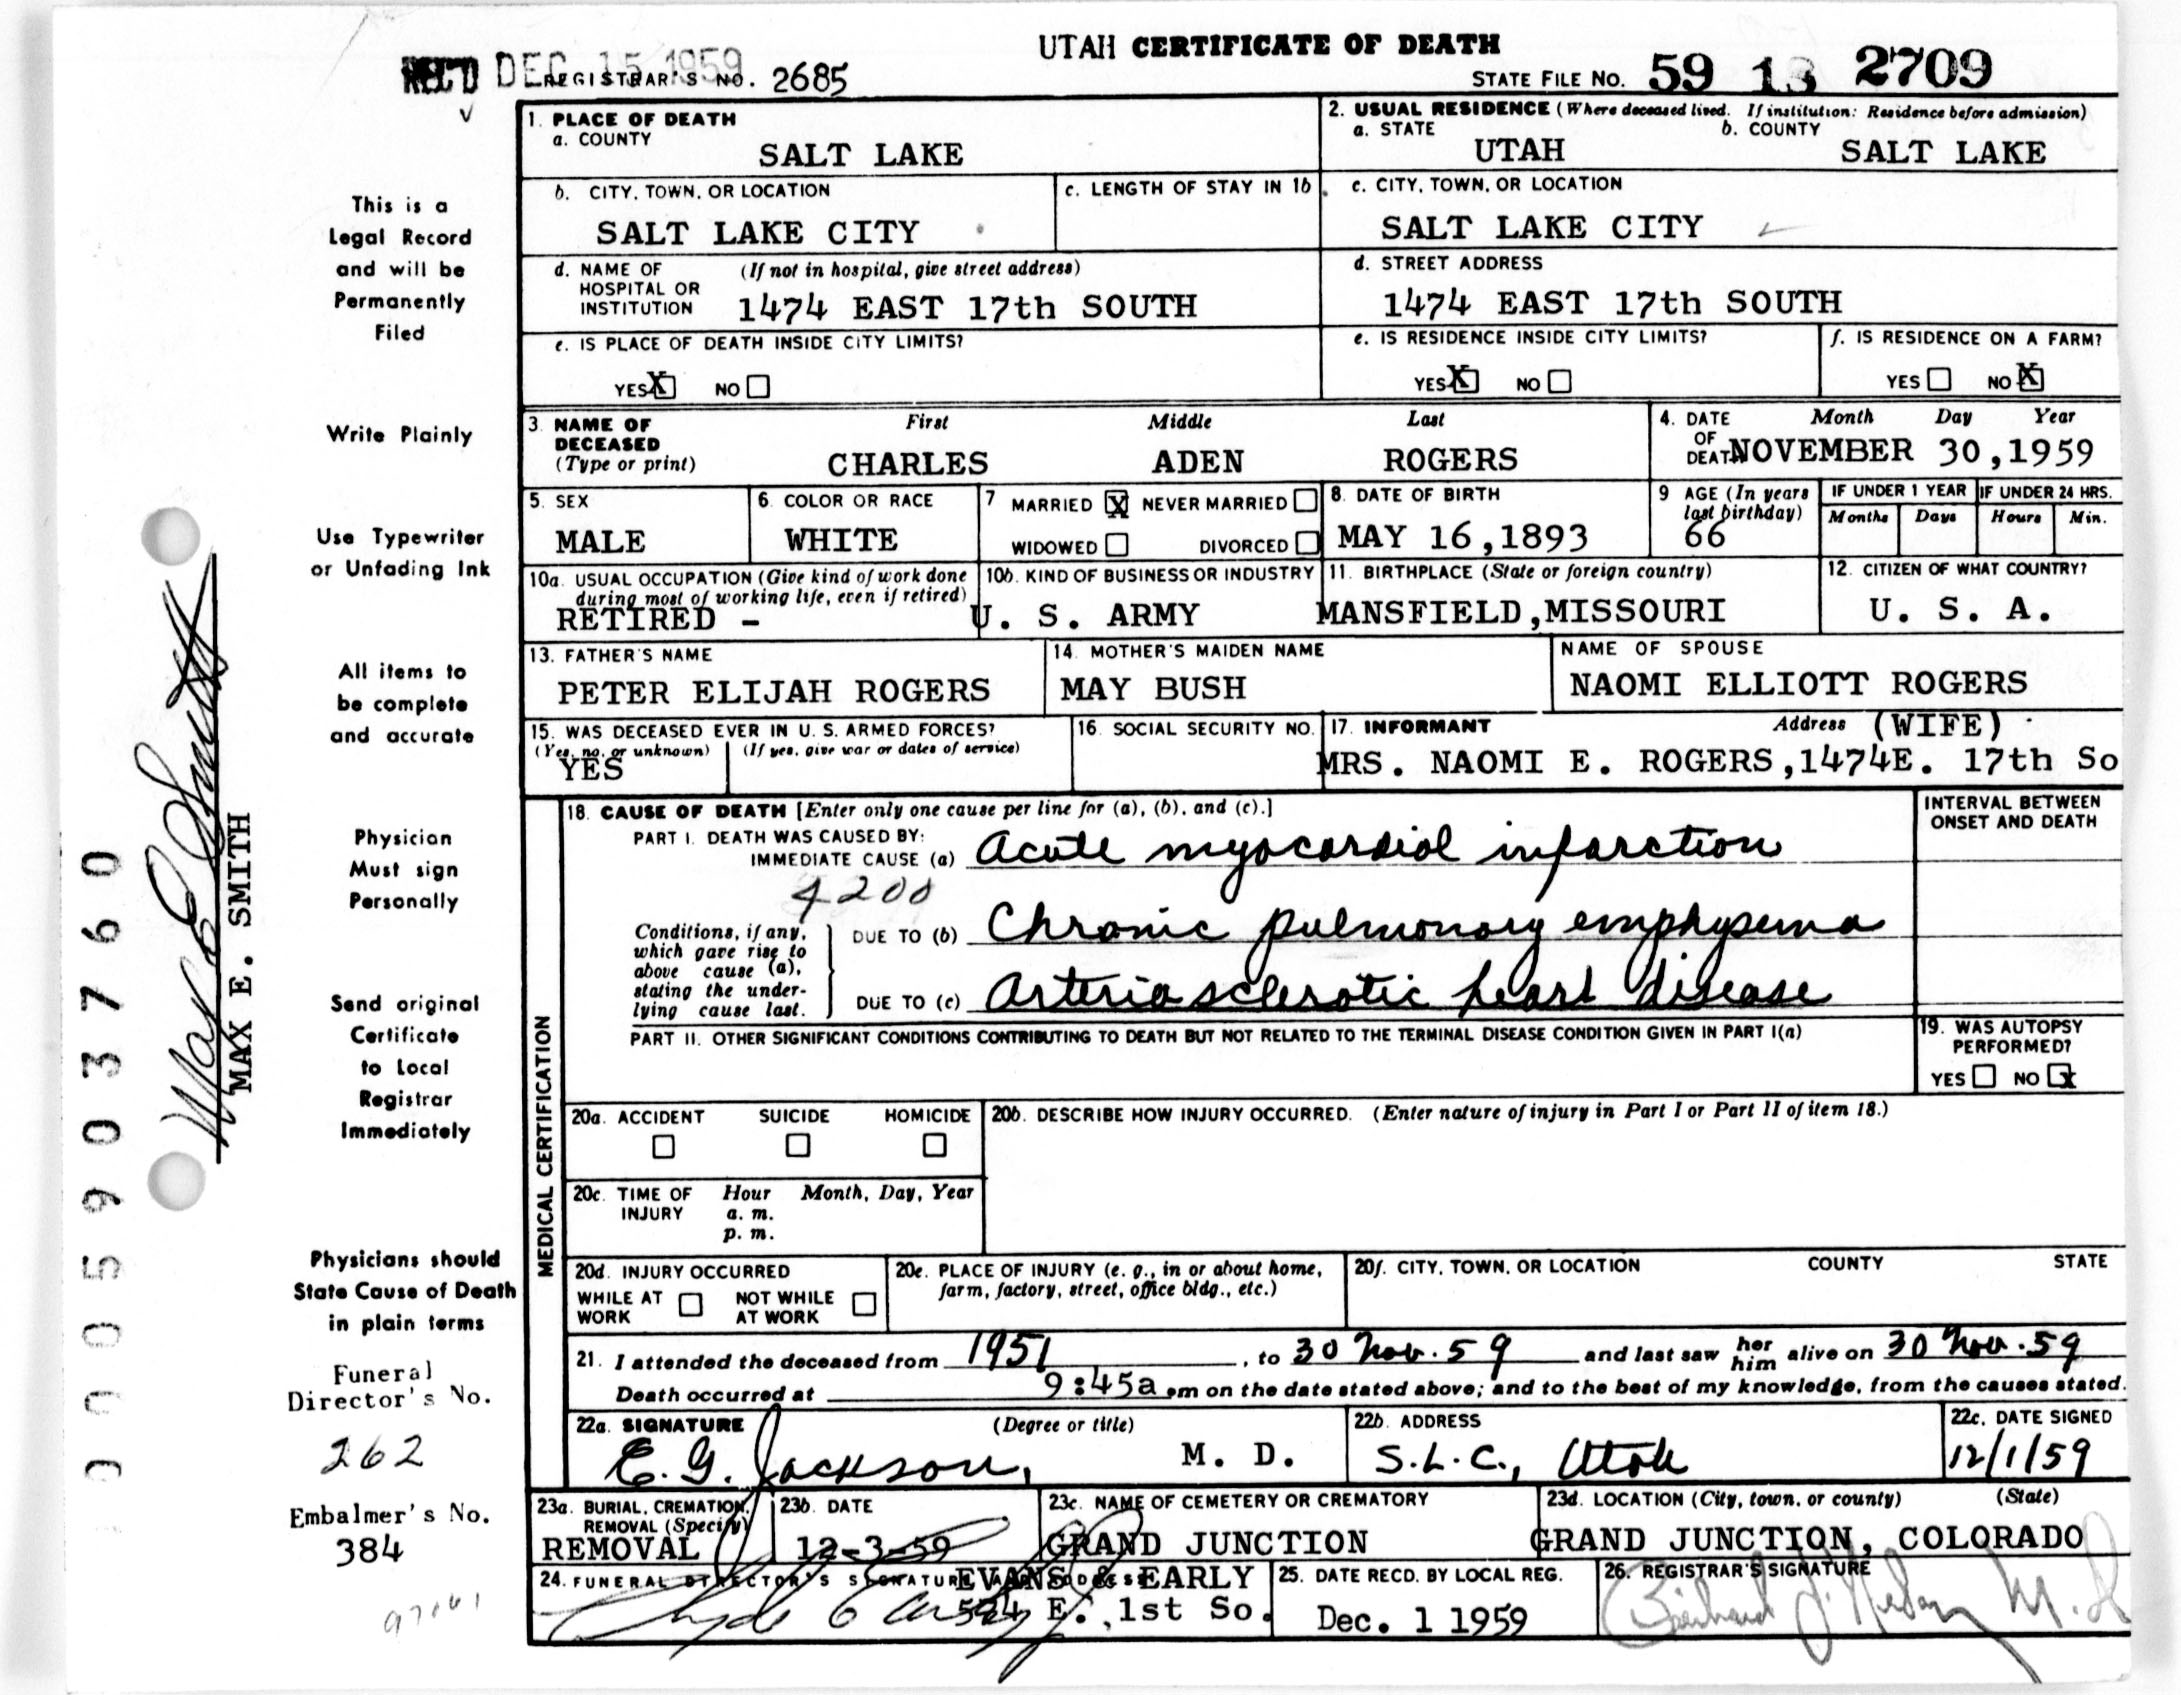 UTAH CERTIFICATE OF DEATH
REC'D DEC 15 1959
REGISTRAR'S NO. 2685
STATE FILE NO. 59 13 2709
1. PLACE OF DEATH
a. COUNTY
SALT LAKE
2. USUAL RESIDENCE (Where deceased lived. If institution: Residence before admission)
a. STATE b. COUNTY
UTAH SALT LAKE
b. CITY, TOWN, OR LOCATION
SALT LAKE CITY
c. LENGTH OF STAY IN 1b
c. CITY, TOWN, OR LOCATION
SALT LAKE CITY
d. NAME OF (If not in hospital, give street address)
HOSPITAL OR
INSTITUTION 1474 EAST 17th SOUTH
d. STREET ADDRESS
1474 EAST 17th SOUTH
e. IS PLACE OF DEATH INSIDE CITY LIMITS?
YES X NO
e. IS RESIDENCE INSIDE CITY LIMITS?
YES X NO
f. IS RESIDENCE ON A FARM?
YES NO X
3. NAME OF First Middle Last
DECEASED
(Type or print) CHARLES ADEN ROGERS
4. DATE Month Day Year
OF
DEATH NOVEMBER 30,1959
5. SEX
MALE
6. COLOR OR RACE
WHITE
7 MARRIED X NEVER MARRIED
WIDOWED DIVORCED
8. DATE OF BIRTH
MAY 16,1893
9 AGE (In years
last birthday)
66
IF UNDER 1 YEAR
Months Days
IF UNDER 24 HRS.
Hours Min.
10a. USUAL OCCUPATION (Give kind of work done
during most of working life, even if retired)
RETIRED -
10b. KIND OF BUSINESS OR INDUSTRY
U. S. ARMY
11. BIRTHPLACE (State or foreign country)
MANSFIELD,MISSOURI
12. CITIZEN OF WHAT COUNTRY?
U. S. A.
13. FATHER'S NAME
PETER ELIJAH ROGERS
14. MOTHER'S MAIDEN NAME
MAY BUSH
NAME OF SPOUSE
NAOMI ELLIOTT ROGERS
15. WAS DECEASED EVER IN U. S. ARMED FORCES?
(Yes, no, or unknown) (If yes, give war or dates of service)
YES
16. SOCIAL SECURITY NO.
17. INFORMANT Address (WIFE)
MRS. NAOMI E. ROGERS,1474E. 17th So
MEDICAL CERTIFICATION
18. CAUSE OF DEATH [Enter only one cause per line for (a), (b), and (c).]
PART I. DEATH WAS CAUSED BY:
IMMEDIATE CAUSE (a) Acute myocardiol infarction
4200
Conditions, if any,
which gave rise to
above cause (a),
stating the under-
lying cause last.
DUE TO (b) Chronic pulmonary emphysema
DUE TO (c) Arteriosclerotic heart disease
INTERVAL BETWEEN
ONSET AND DEATH
PART II. OTHER SIGNIFICANT CONDITIONS CONTRIBUTING TO DEATH BUT NOT RELATED TO THE TERMINAL DISEASE CONDITION GIVEN IN PART I(a)
19. WAS AUTOPSY
PERFORMED?
YES NO X
20a. ACCIDENT SUICIDE HOMICIDE
20b. DESCRIBE HOW INJURY OCCURRED. (Enter nature of injury in Part I or Part II of item 18.)
20c. TIME OF Hour Month, Day, Year
INJURY a. m.
p. m.
20d. INJURY OCCURRED
WHILE AT NOT WHILE
WORK AT WORK
20e. PLACE OF INJURY (e. g., in or about home,
farm, factory, street, office bldg., etc.)
20f. CITY, TOWN, OR LOCATION COUNTY STATE
21. I attended the deceased from 1951, to 30 Nov. 59 and last saw her him alive on 30 Nov. 59
Death occurred at 9:45a m on the date stated above; and to the best of my knowledge, from the causes stated.
22a. SIGNATURE (Degree or title)
E. G. Jackson, M. D.
22b. ADDRESS
S.L.C., Utah
22c. DATE SIGNED
12/1/59
23a. BURIAL, CREMATION,
REMOVAL (Specify)
REMOVAL
23b. DATE
12-3-59
23c. NAME OF CEMETERY OR CREMATORY
GRAND JUNCTION
23d. LOCATION (City, town, or county) (State)
GRAND JUNCTION, COLORADO
24. FUNERAL DIRECTOR'S SIGNATURE ADDRESS
EVANS & EARLY
574 E. 1st So.
25. DATE RECD. BY LOCAL REG.
Dec. 1 1959
26. REGISTRAR'S SIGNATURE
This is a
Legal Record
and will be
Permanently
Filed
Write Plainly
Use Typewriter
or Unfading Ink
All items to
be complete
and accurate
Physician
Must sign
Personally
Send original
Certificate
to Local
Registrar
Immediately
Physicians should
State Cause of Death
in plain terms
Funeral
Director's No.
262
Embalmer's No.
384
Max E Smith
MAX E. SMITH
0005903760